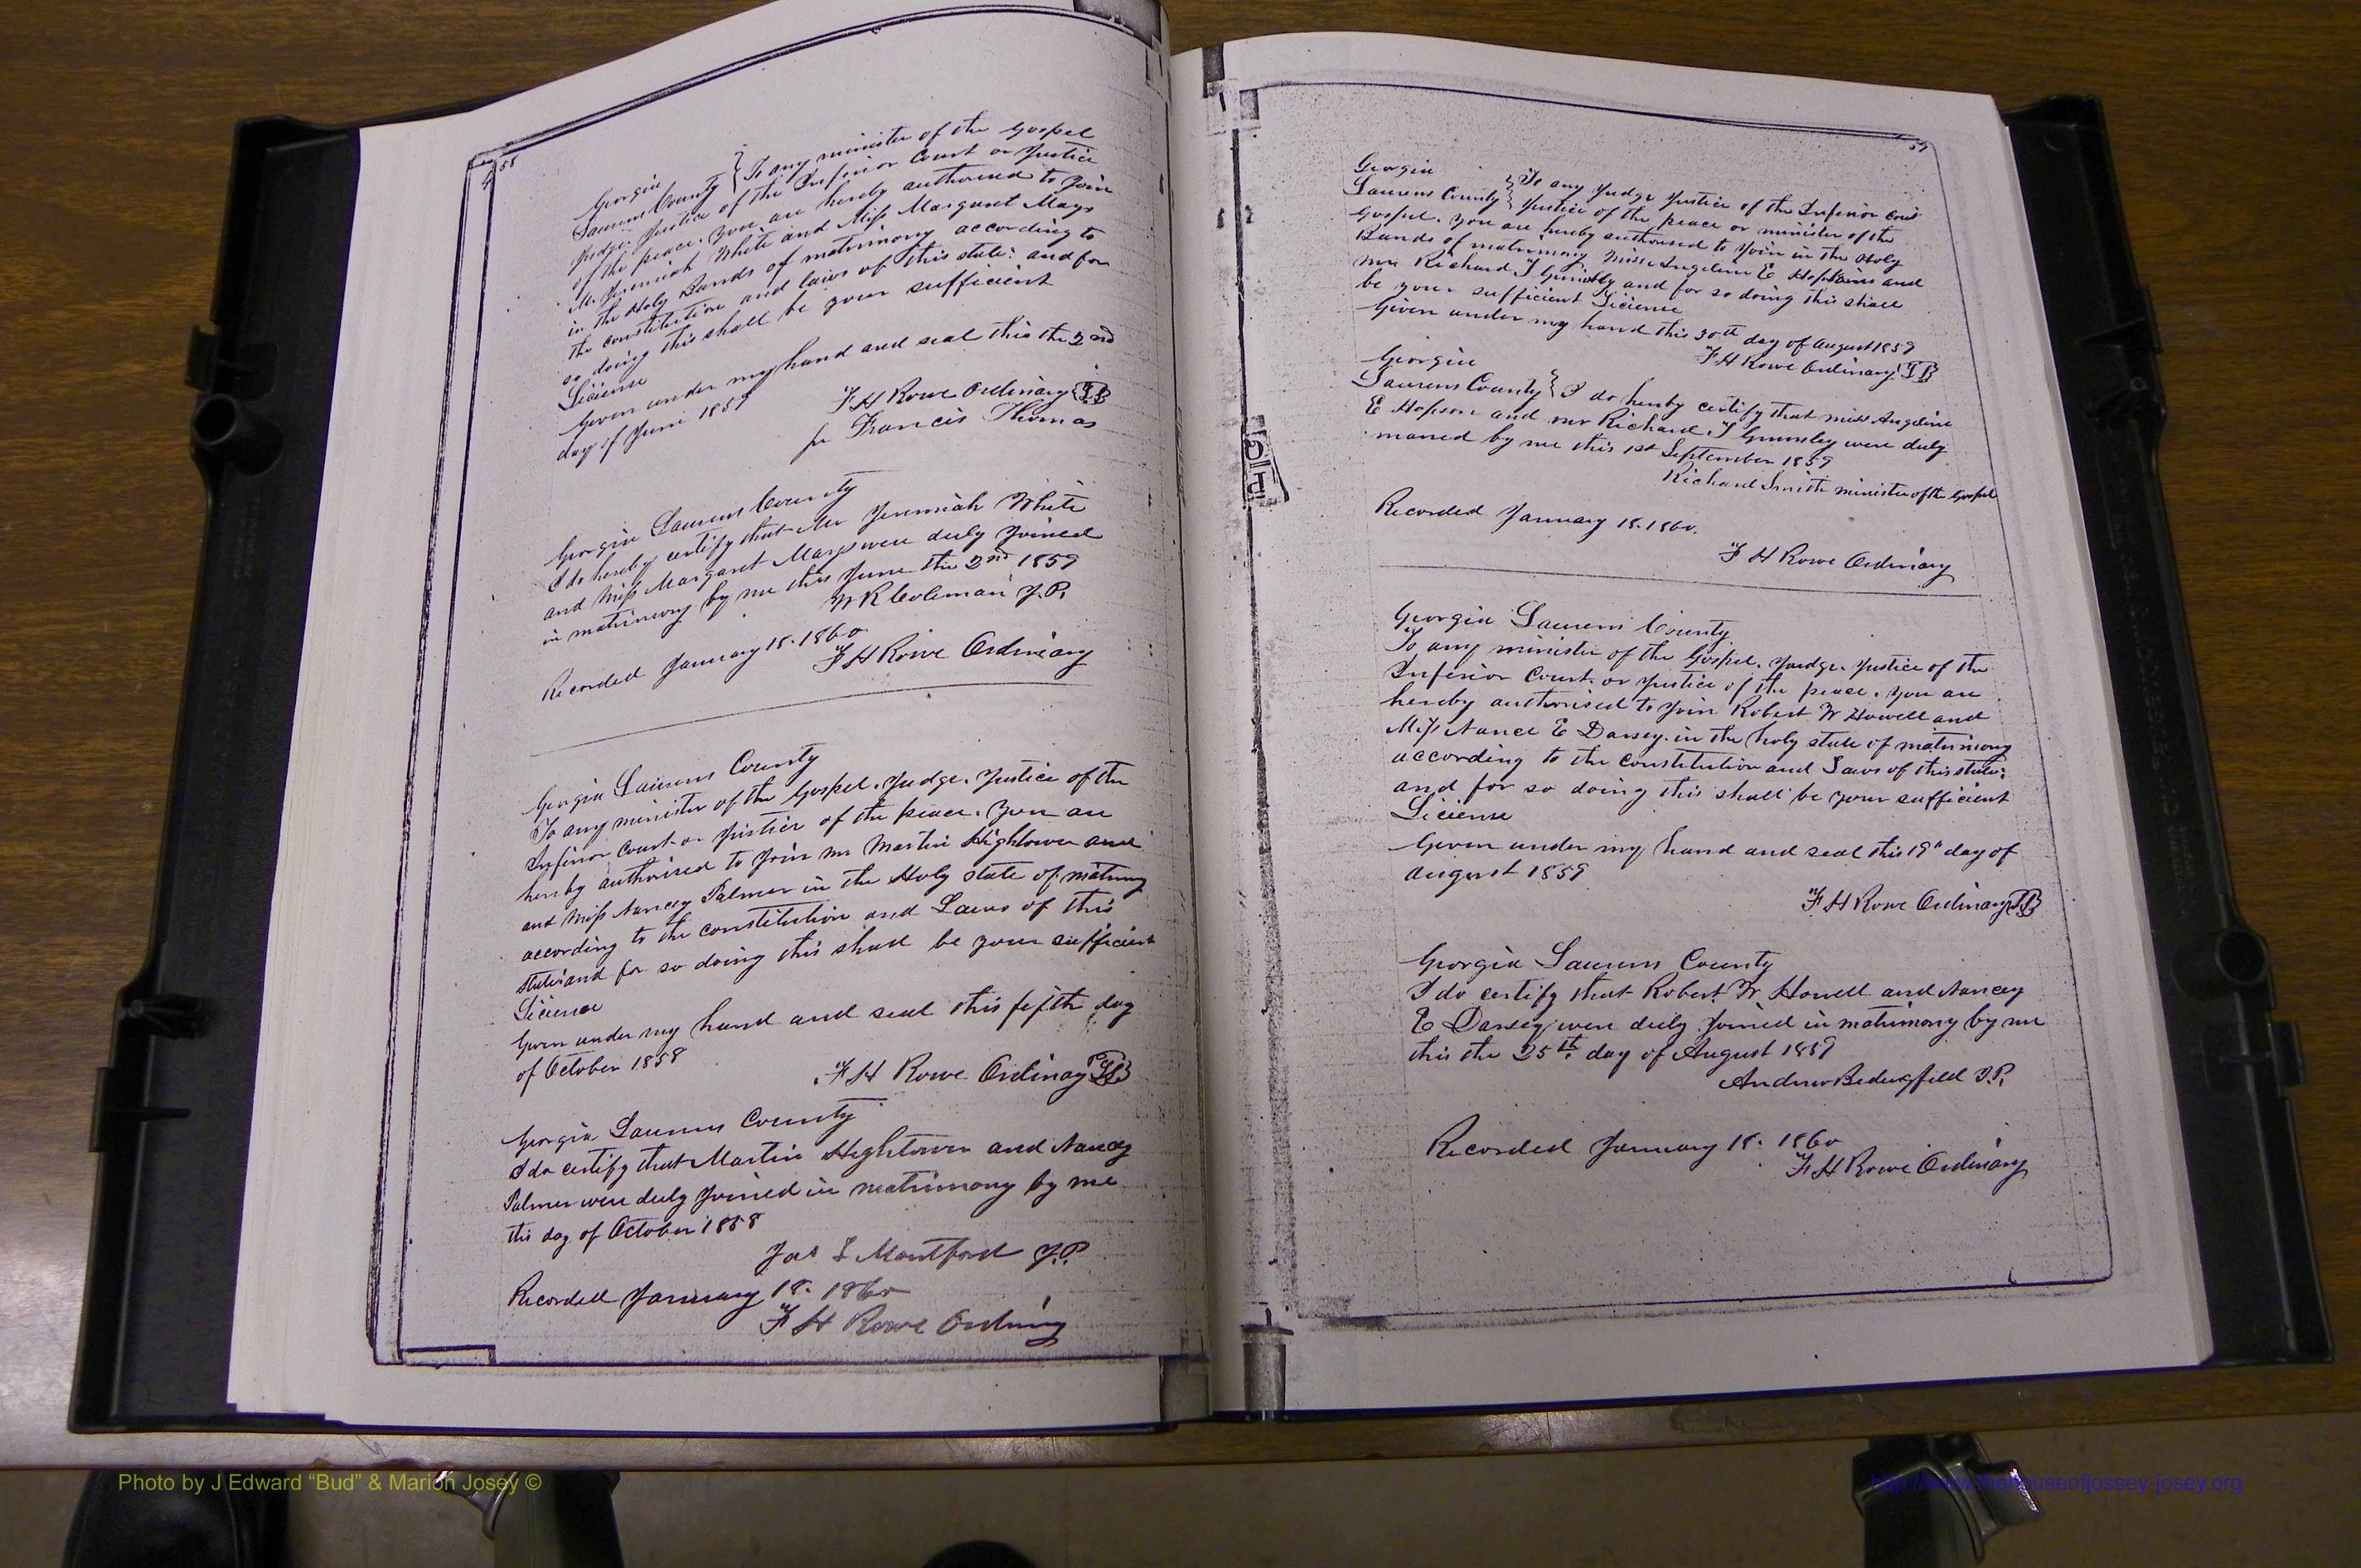 58
Georgia
Laurens County } To any minister of the Gospel
Judge. Justice of the Inferior Court or Justice
of the peace. You are hereby authorised to Join
Mr Jeremiah White and Miss Margaret Mays
in the Holy Bands of matrimony according to
the constitution and laws of this state: and for
so doing this shall be your sufficient
License
Given under my hand and seal this the 2nd
day of June 1859
F H Rowe Ordinary
pr Francis Thomas
Georgia Laurens County
I do hereby certify that Mr Jeremiah White
and Miss Margaret Mays were duly Joined
in matrimony by me this June the 2nd 1859
W R Coleman J.P.
Recorded January 18. 1860
F H Rowe Ordinary
Georgia Laurens County
To any minister of the Gospel. Judge. Justice of the
Inferior Court or Justice of the peace. You are
hereby authorised to Join mr Martin Hightower and
and Miss Nancy Palmer in the Holy state of matrimony
according to the constitution and Laws of this
state: and for so doing this shall be your sufficient
License
Given under my hand and seal this fifth day
of October 1858
F H Rowe Ordinary
Georgia Laurens County
I do certify that Martin Hightower and Nancy
Palmer were duly Joined in matrimony by me
this day of October 1858
Jas L Montford J.P.
Recorded January 18. 1860
F H Rowe Ordinary
59
Georgia
Laurens County } To any Judge Justice of the Inferior Court
Justice of the peace or minister of the
Gospel. You are hereby authorised to Join in the Holy
Bands of matrimony Miss Angeline E and
mr Richard J and for so doing this shall
be your sufficient License
Given under my hand this 30th day of August 1859
F H Rowe Ordinary
Georgia
Laurens County } I do herby certify that miss Angeline
E Hopson and mr Richard J Grumsley were duly
maried by me this 1st September 1859
Richard Smith minister of the Gospel
Recorded January 18. 1860.
F H Rowe Ordinary
Georgia Laurens County
To any minister of the Gospel. Judge. Justice of the
Inferior Court. or Justice of the peace. You are
hereby authorised to Join Robert W Howell and
Miss E Darsey. in the holy state of matrimony
according to the constitution and Laws of this state;
and for so doing this shall be your sufficient
License
Given under my hand and seal this 19th day of
August 1859
F H Rowe Ordinary
Georgia Laurens County
I do certify that Robert W. Howell and Nancy
E Darsey were duly Joined in matrimony by me
this the 25th day of August 1859
Andrew Bedingfield J.P.
Recorded January 18. 1860
F H Rowe Ordinary
Photo by J Edward “Bud” & Marion Josey ©
http://www.thehouseofjossey-josey.org